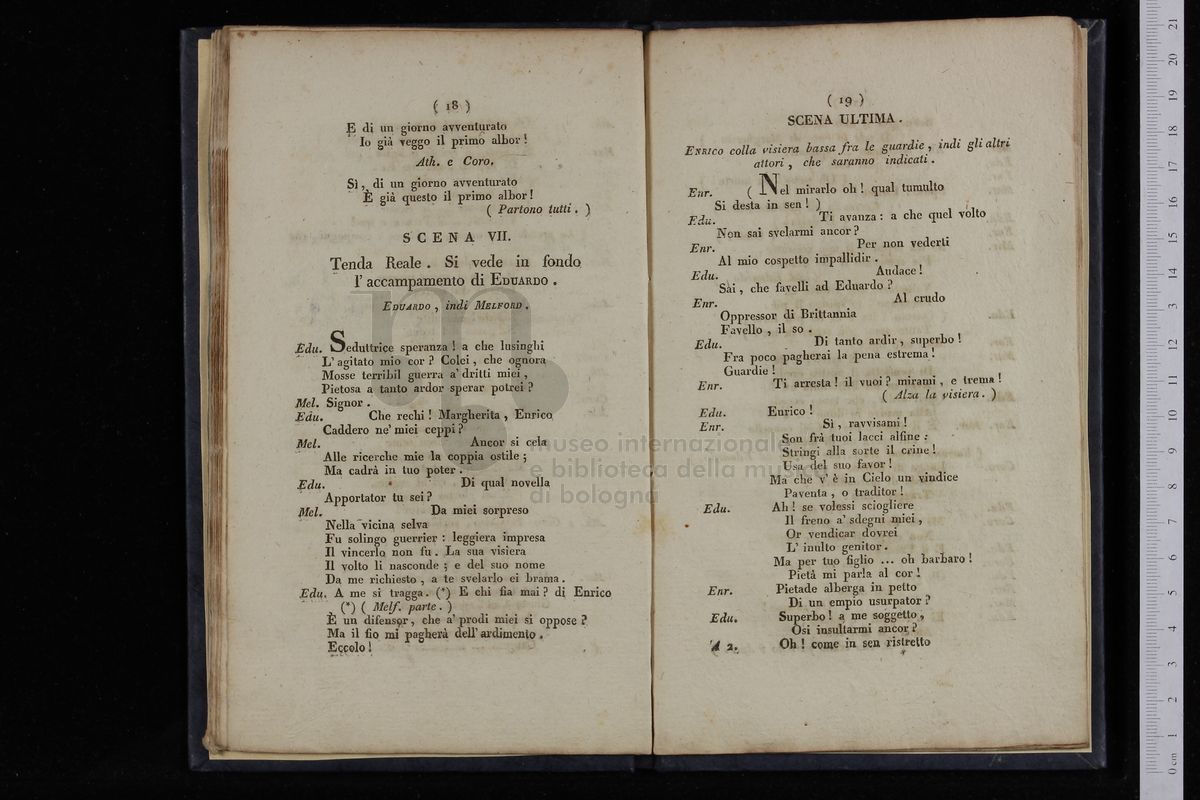 ( 18 )
E di un giorno avventurato
Io già veggo il primo albor !
Ath. e Coro.
Sì, di un giorno avventurato
È già questo il primo albor !
( Partono tutti . )
SCENA VII.
Tenda Reale . Si vede in fondo
l' accampamento di EDUARDO .
EDUARDO , indi MELFORD .
Edu. Seduttrice speranza ! a che lusinghi
L' agitato mio cor ? Colei , che ognora
Mosse terribil guerra a' dritti miei ,
Pietosa a tanto ardor sperar potrei ?
Mel. Signor .
Edu. Che rechi ! Margherita , Enrico
Caddero ne' miei ceppi ?
Mel. Ancor si cela
Alle ricerche mie la coppia ostile ;
Ma cadrà in tuo poter .
Edu. Di qual novella
Apportator tu sei ?
Mel. Da miei sorpreso
Nella vicina selva
Fu solingo guerrier : leggiera impresa
Il vincerlo non fu . La sua visiera
Il volto li nasconde ; e del suo nome
Da me richiesto , a te svelarlo ei brama .
Edu. A me si tragga . (*) E chi fia mai ? di Enrico
(*) ( Melf. parte . )
È un difensor , che a' prodi miei si oppose ?
Ma il fio mi pagherà dell' ardimento .
Eccolo !
( 19 )
SCENA ULTIMA .
ENRICO colla visiera bassa fra le guardie , indi gli altri
attori , che saranno indicati .
Enr. ( Nel mirarlo oh ! qual tumulto
Si desta in sen ! )
Edu. Ti avanza : a che quel volto
Non sai svelarmi ancor ?
Enr. Per non vederti
Al mio cospetto impallidir .
Edu. Audace !
Sai , che favelli ad Eduardo ?
Enr. Al crudo
Oppressor di Brittannia
Favello , il so .
Edu. Di tanto ardir , superbo !
Fra poco pagherai la pena estrema !
Guardie !
Enr. Ti arresta ! il vuoi ? mirami , e trema !
( Alza la visiera . )
Edu. Enrico !
Enr. Sì , ravvisami !
Son frà tuoi lacci alfine :
Stringi alla sorte il crine !
Usa del suo favor !
Ma che v' è in Cielo un vindice
Paventa , o traditor !
Edu. Ah ! se volessi sciogliere
Il freno a' sdegni miei ,
Or vendicar dovrei
L' inulto genitor .
Ma per tuo figlio ... oh barbaro !
Pietà mi parla al cor !
Enr. Pietade alberga in petto
Di un empio usurpator ?
Edu. Superbo ! a me soggetto ,
Osi insultarmi ancor ?
A 2. Oh ! come in sen ristretto
museo internazionale
e biblioteca della musica
di bologna